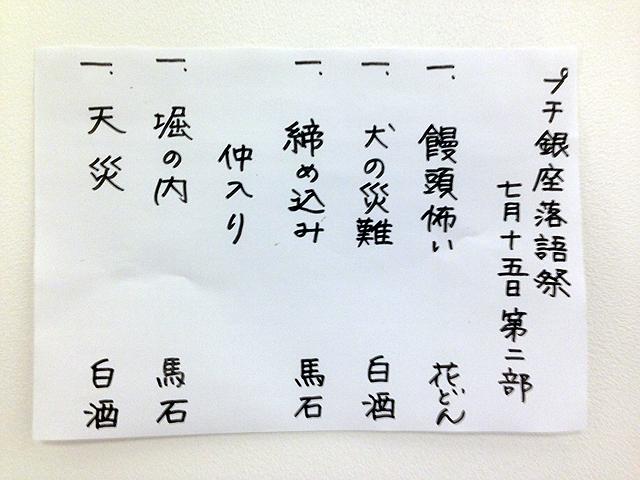 プチ銀座落語祭
七月十五日 第二部
一、饅頭怖い 花どん
一、犬の災難 白酒
一、締め込み 馬石
仲入り
一、堀の内 馬石
一、天災 白酒